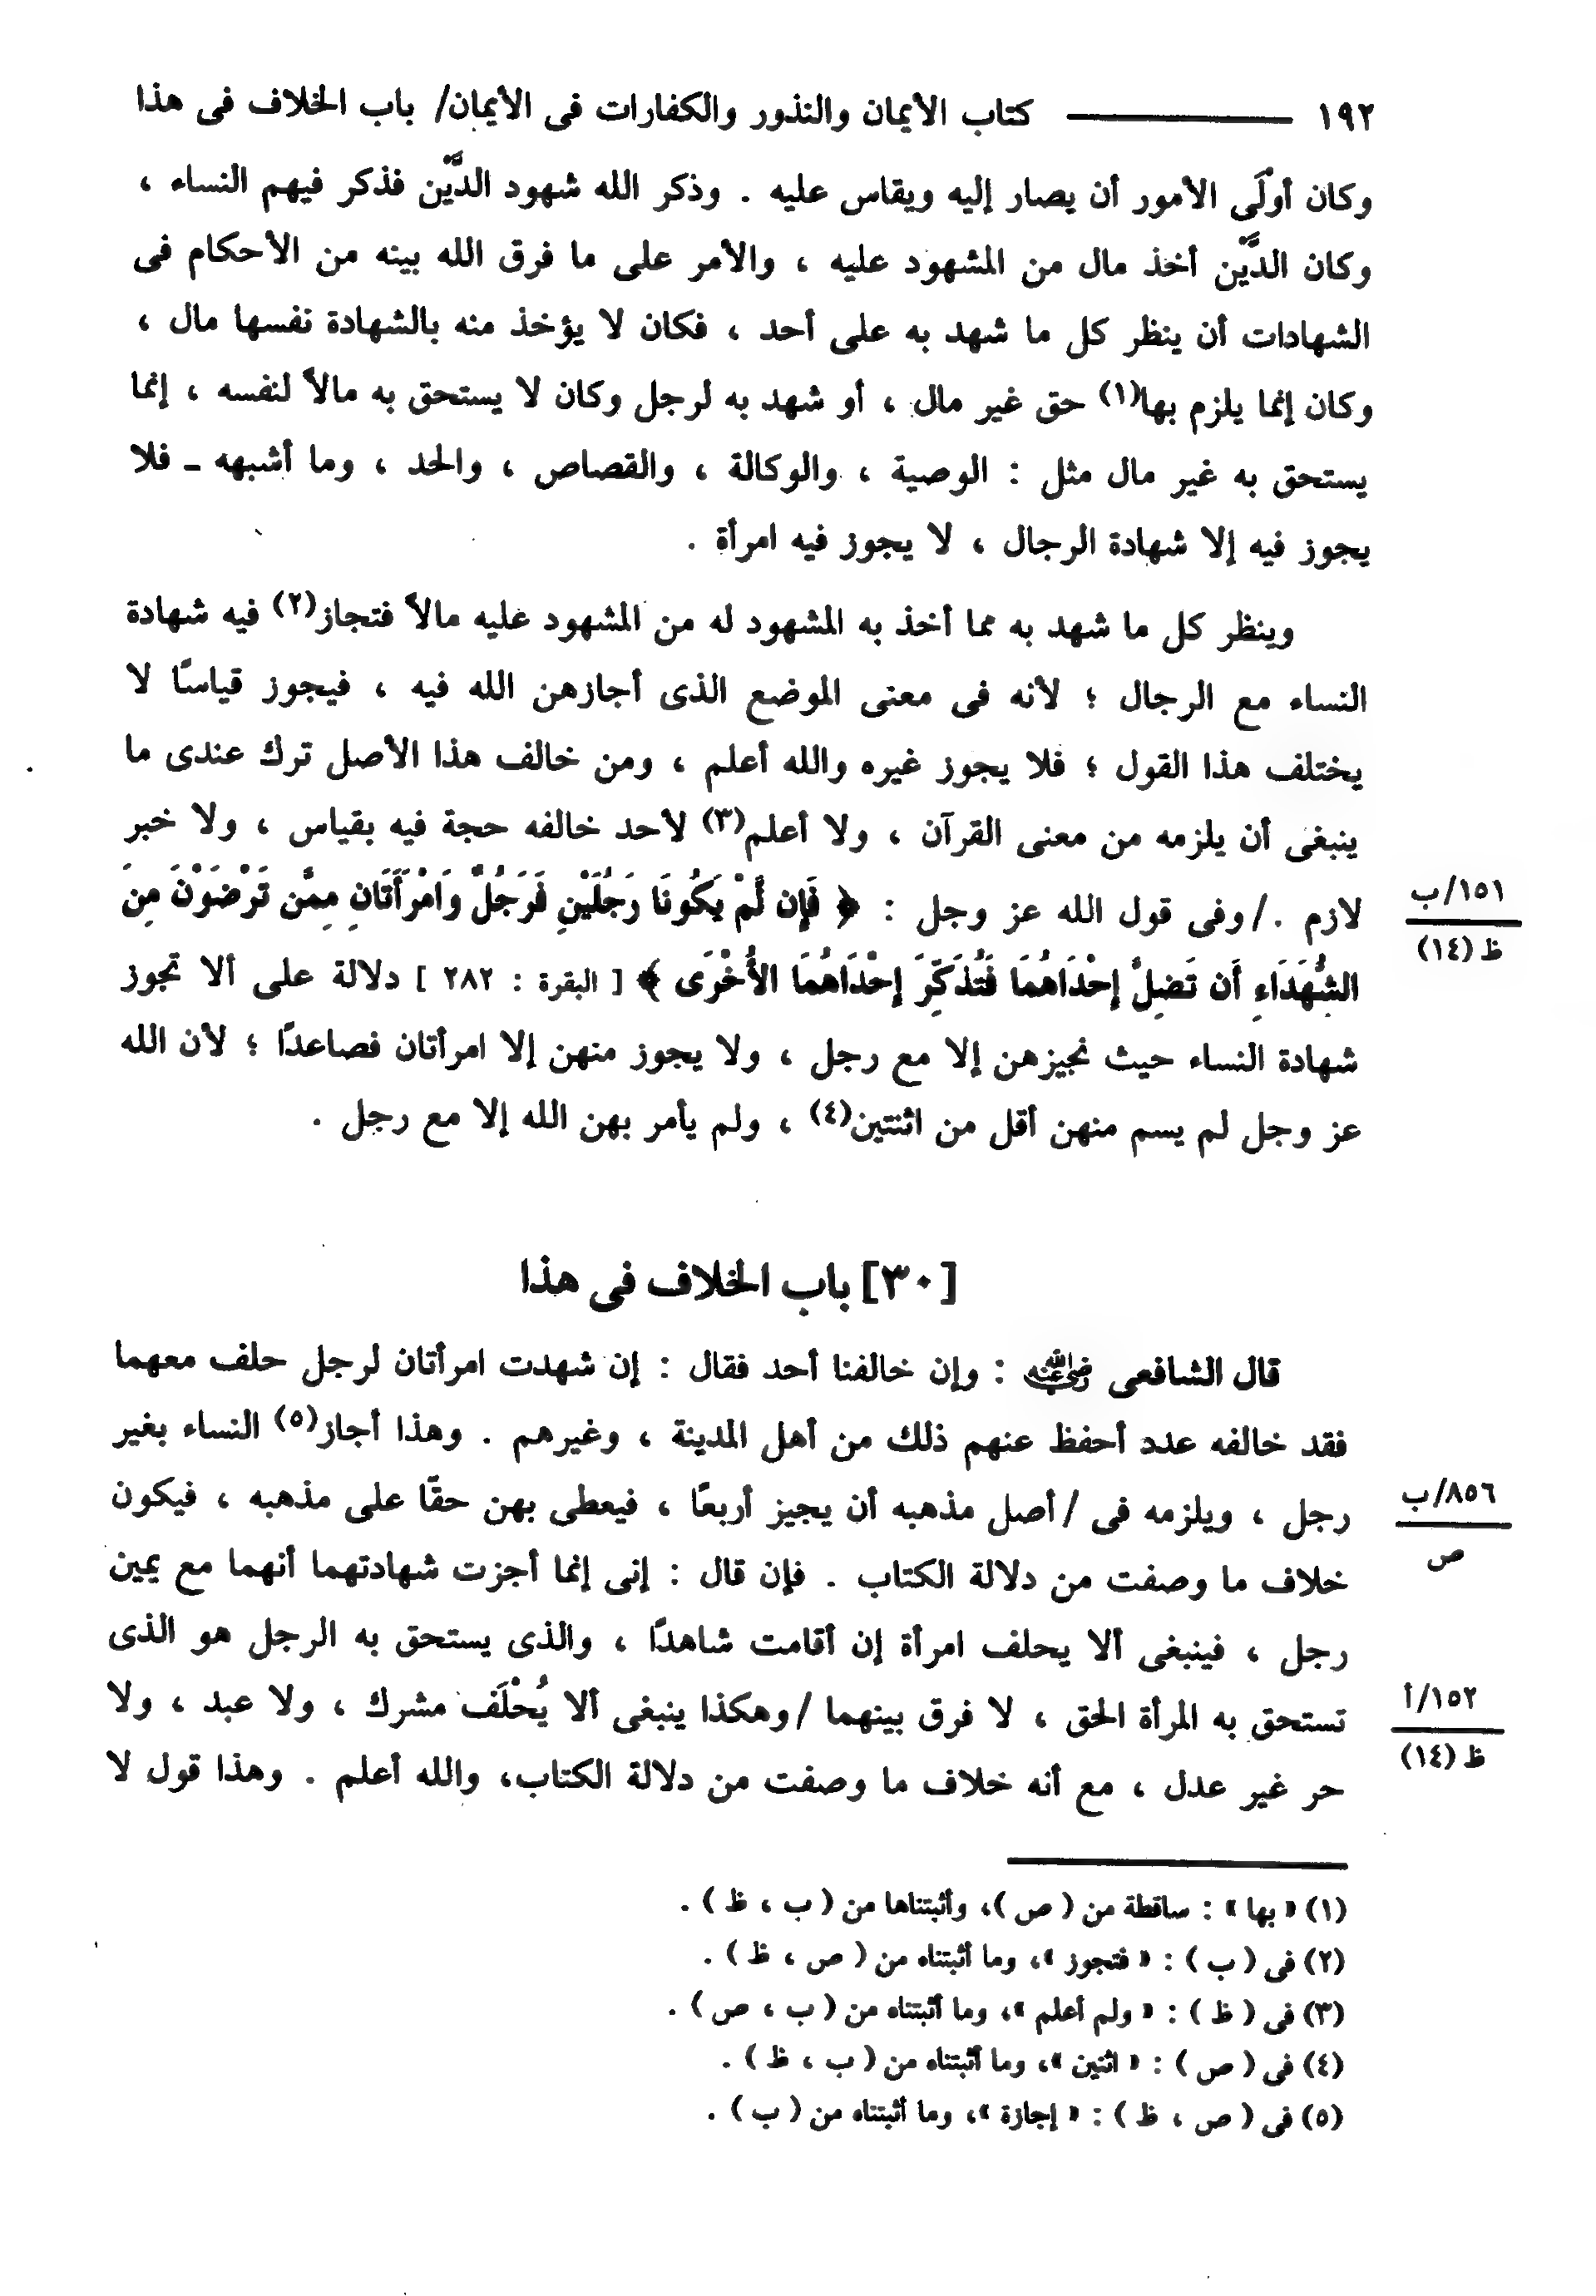 ١٩٢ ـــــــــ كتاب الأيمان والنذور والكفارات فى الأيمان/ باب الخلاف فى هذا
وكان أولَى الأمور أن يصار إليه ويقاس عليه . وذكر الله شهود الدَّيْن فذكر فيهم النساء ،
وكان الدَّيْن أخذ مال من المشهود عليه ، والأمر على ما فرق الله بينه من الأحكام فى
الشهادات أن ينظر كل ما شهد به على أحد ، فكان لا يؤخذ منه بالشهادة نفسها مال ،
وكان إنما يلزم بها(١) حق غير مال ، أو شهد به لرجل وكان لا يستحق به مالاً لنفسه ، إنما
يستحق به غير مال مثل : الوصية ، والوكالة ، والقصاص ، والحد ، وما أشبهه ـ فلا
يجوز فيه إلا شهادة الرجال ، لا يجوز فيه امرأة .
وينظر كل ما شهد به مما أخذ به المشهود له من المشهود عليه مالاً فتجاز(٢) فيه شهادة
النساء مع الرجال ؛ لأنه فى معنى الموضع الذى أجازهن الله فيه ، فيجوز قياسًا لا
يختلف هذا القول ؛ فلا يجوز غيره والله أعلم ، ومن خالف هذا الأصل ترك عندى ما
ينبغى أن يلزمه من معنى القرآن ، ولا أعلم(٣) لأحد خالفه حجة فيه بقياس ، ولا خبر
لازم ./ وفى قول الله عز وجل : ﴿ فَإِن لَّمْ يَكُونَا رَجُلَيْنِ فَرَجُلٌ وَامْرَأَتَانِ مِمَّن تَرْضَوْنَ مِنَ
١٥١/ب
ظ (١٤)
الشُّهَدَاءِ أَن تَضِلَّ إِحْدَاهُمَا فَتُذَكِّرَ إِحْدَاهُمَا الأُخْرَى ﴾ [ البقرة : ٢٨٢ ] دلالة على ألا تجوز
شهادة النساء حيث نجيزهن إلا مع رجل ، ولا يجوز منهن إلا امرأتان فصاعدًا ؛ لأن الله
عز وجل لم يسم منهن أقل من اثنتين(٤) ، ولم يأمر بهن الله إلا مع رجل .
[٣٠] باب الخلاف فى هذا
قال الشافعى رضي الله عنه : وإن خالفنا أحد فقال : إن شهدت امرأتان لرجل حلف معهما
فقد خالفه عدد أحفظ عنهم ذلك من أهل المدينة ، وغيرهم . وهذا أجاز(٥) النساء بغير
رجل ، ويلزمه فى / أصل مذهبه أن يجيز أربعًا ، فيعطى بهن حقًا على مذهبه ، فيكون
٨٥٦/ب
ص
خلاف ما وصفت من دلالة الكتاب . فإن قال : إنى إنما أجزت شهادتهما أنهما مع يمين
رجل ، فينبغى ألا يحلف امرأة إن أقامت شاهدًا ، والذى يستحق به الرجل هو الذى
تستحق به المرأة الحق ، لا فرق بينهما / وهكذا ينبغى ألا يُحْلَف مشرك ، ولا عبد ، ولا
١٥٢/أ
ظ (١٤)
حر غير عدل ، مع أنه خلاف ما وصفت من دلالة الكتاب، والله أعلم . وهذا قول لا
(١) « بها » : ساقطة من ( ص )، وأثبتناها من ( ب ، ظ ) .
(٢) فى ( ب ) : « فتجوز »، وما أثبتناه من ( ص ، ظ ) .
(٣) فى ( ظ ) : « ولم أعلم »، وما أثبتناه من ( ب ، ص ) .
(٤) فى ( ص ) : « اثنين »، وما أثبتناه من ( ب ، ظ ) .
(٥) فى ( ص ، ظ ) : « إجازة »، وما أثبتناه من ( ب ) .